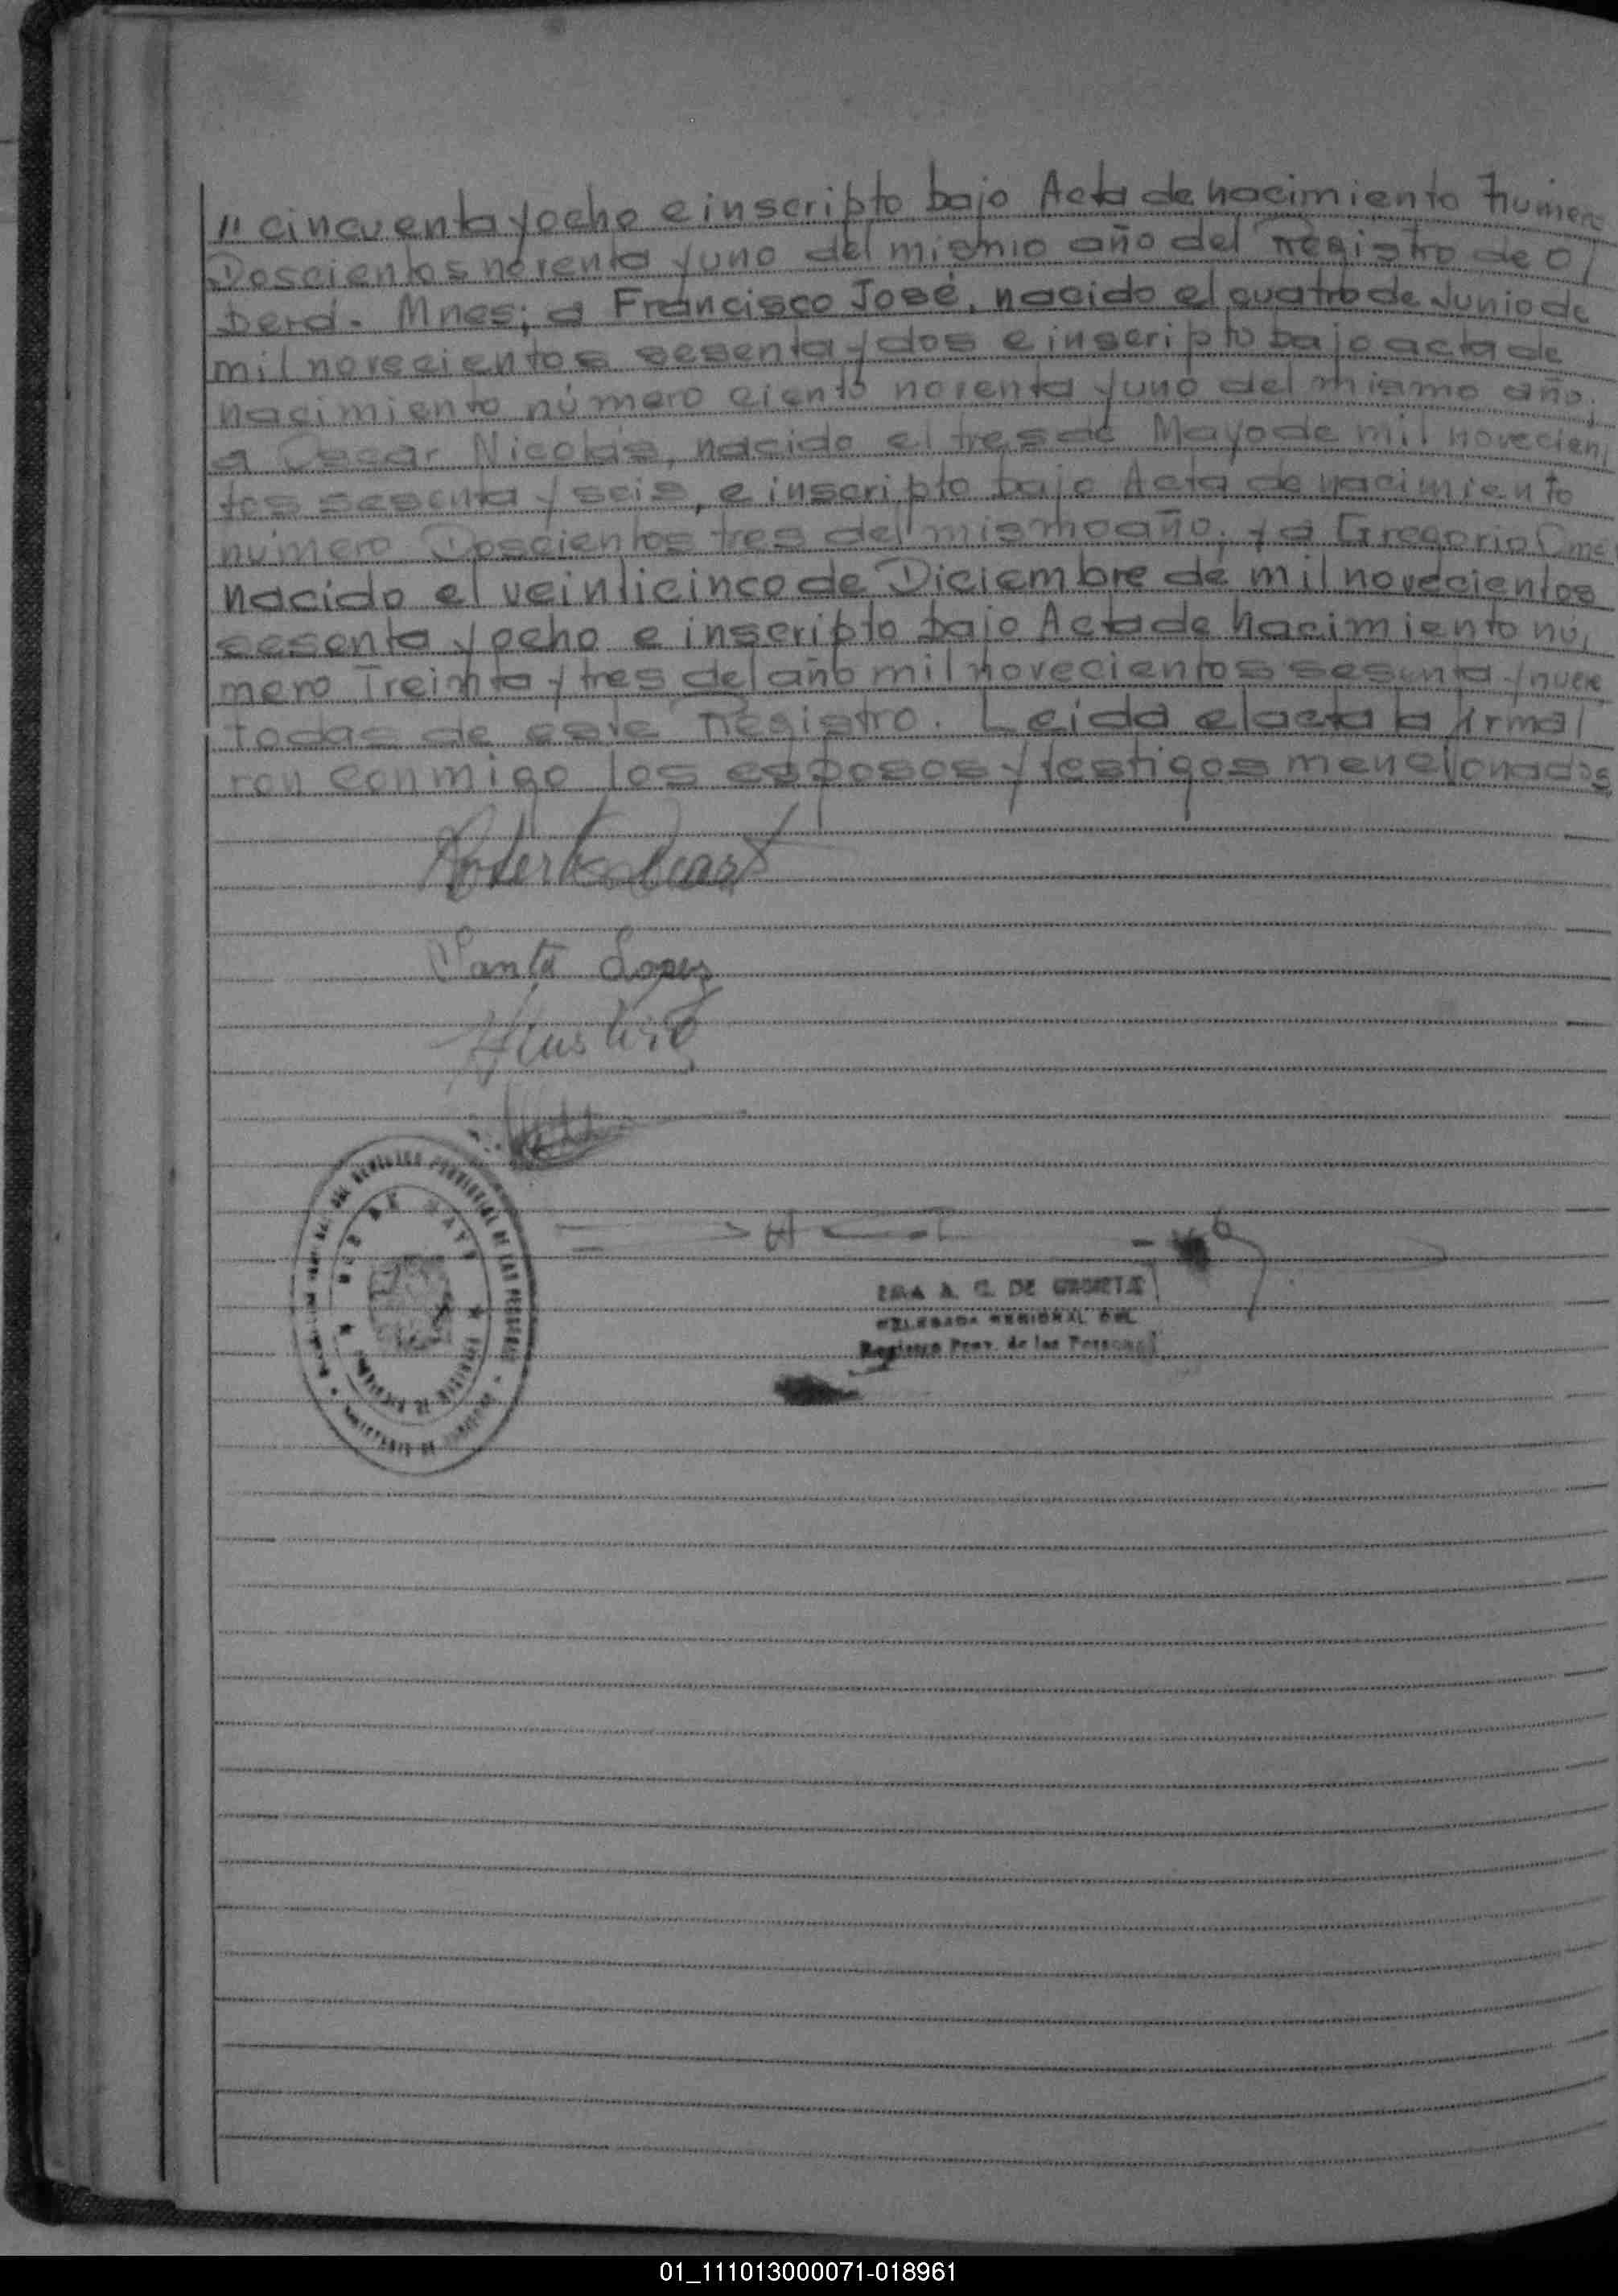 " cincuenta y ocho e inscripto bajo Acta de nacimiento número
Doscientos noventa y uno del mismo año del Registro de O/
berá. Mnes; a Francisco José, nacido el cuatro de Junio de
mil novecientos sesenta y dos e inscripto bajo acta de
nacimiento número ciento noventa y uno del mismo año;
a Oscar Nicolás, nacido el tres de Mayo de mil novecien/
tos sesenta y seis, e inscripto bajo Acta de nacimiento
número Doscientos tres del mismo año, y a Gregorio
nacido el veinticinco de Diciembre de mil novecientos
sesenta y ocho e inscripto bajo Acta de nacimiento nú/
mero Treinta y tres del año mil novecientos sesenta y nueve
todas de este Registro. Leida el acta la firma/
ron conmigo los esposos y testigos mencionados
Santa Lopez
A. C. DE
DELEGADA REGIONAL DEL
Registro Prov. de las Personas
01_111013000071-018961